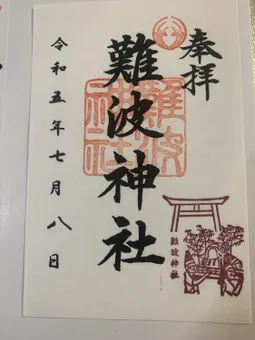 奉拝
難波神社
難波神社
難波神社
令和五年七月八日